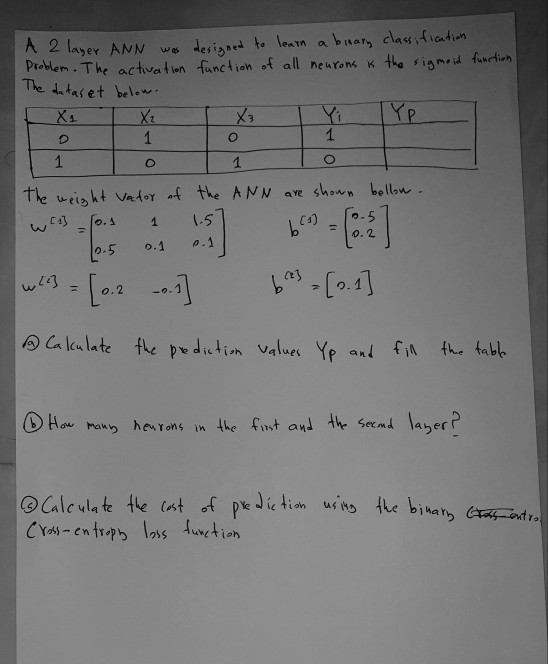 A 2 layer ANN was designed to learn a binary classification
Problem. The activation function of all neurons is the sigmoid function
The dataset below.
X1 X2 X3 Yi YP
0 1 0 1
1 0 1 0
The weight vector of the ANN are shown bellow.
w[1] = [0.1 1 1.5 b[1] = [0.5
0.5 0.1 0.1] 0.2]
w[2] = [0.2 -0.1] b[2] = [0.1]
ⓐ Calculate the prediction values Yp and fill the table
ⓑ How many neurons in the first and the second layer?
ⓒ Calculate the cost of prediction using the binary
Cross-entropy loss function